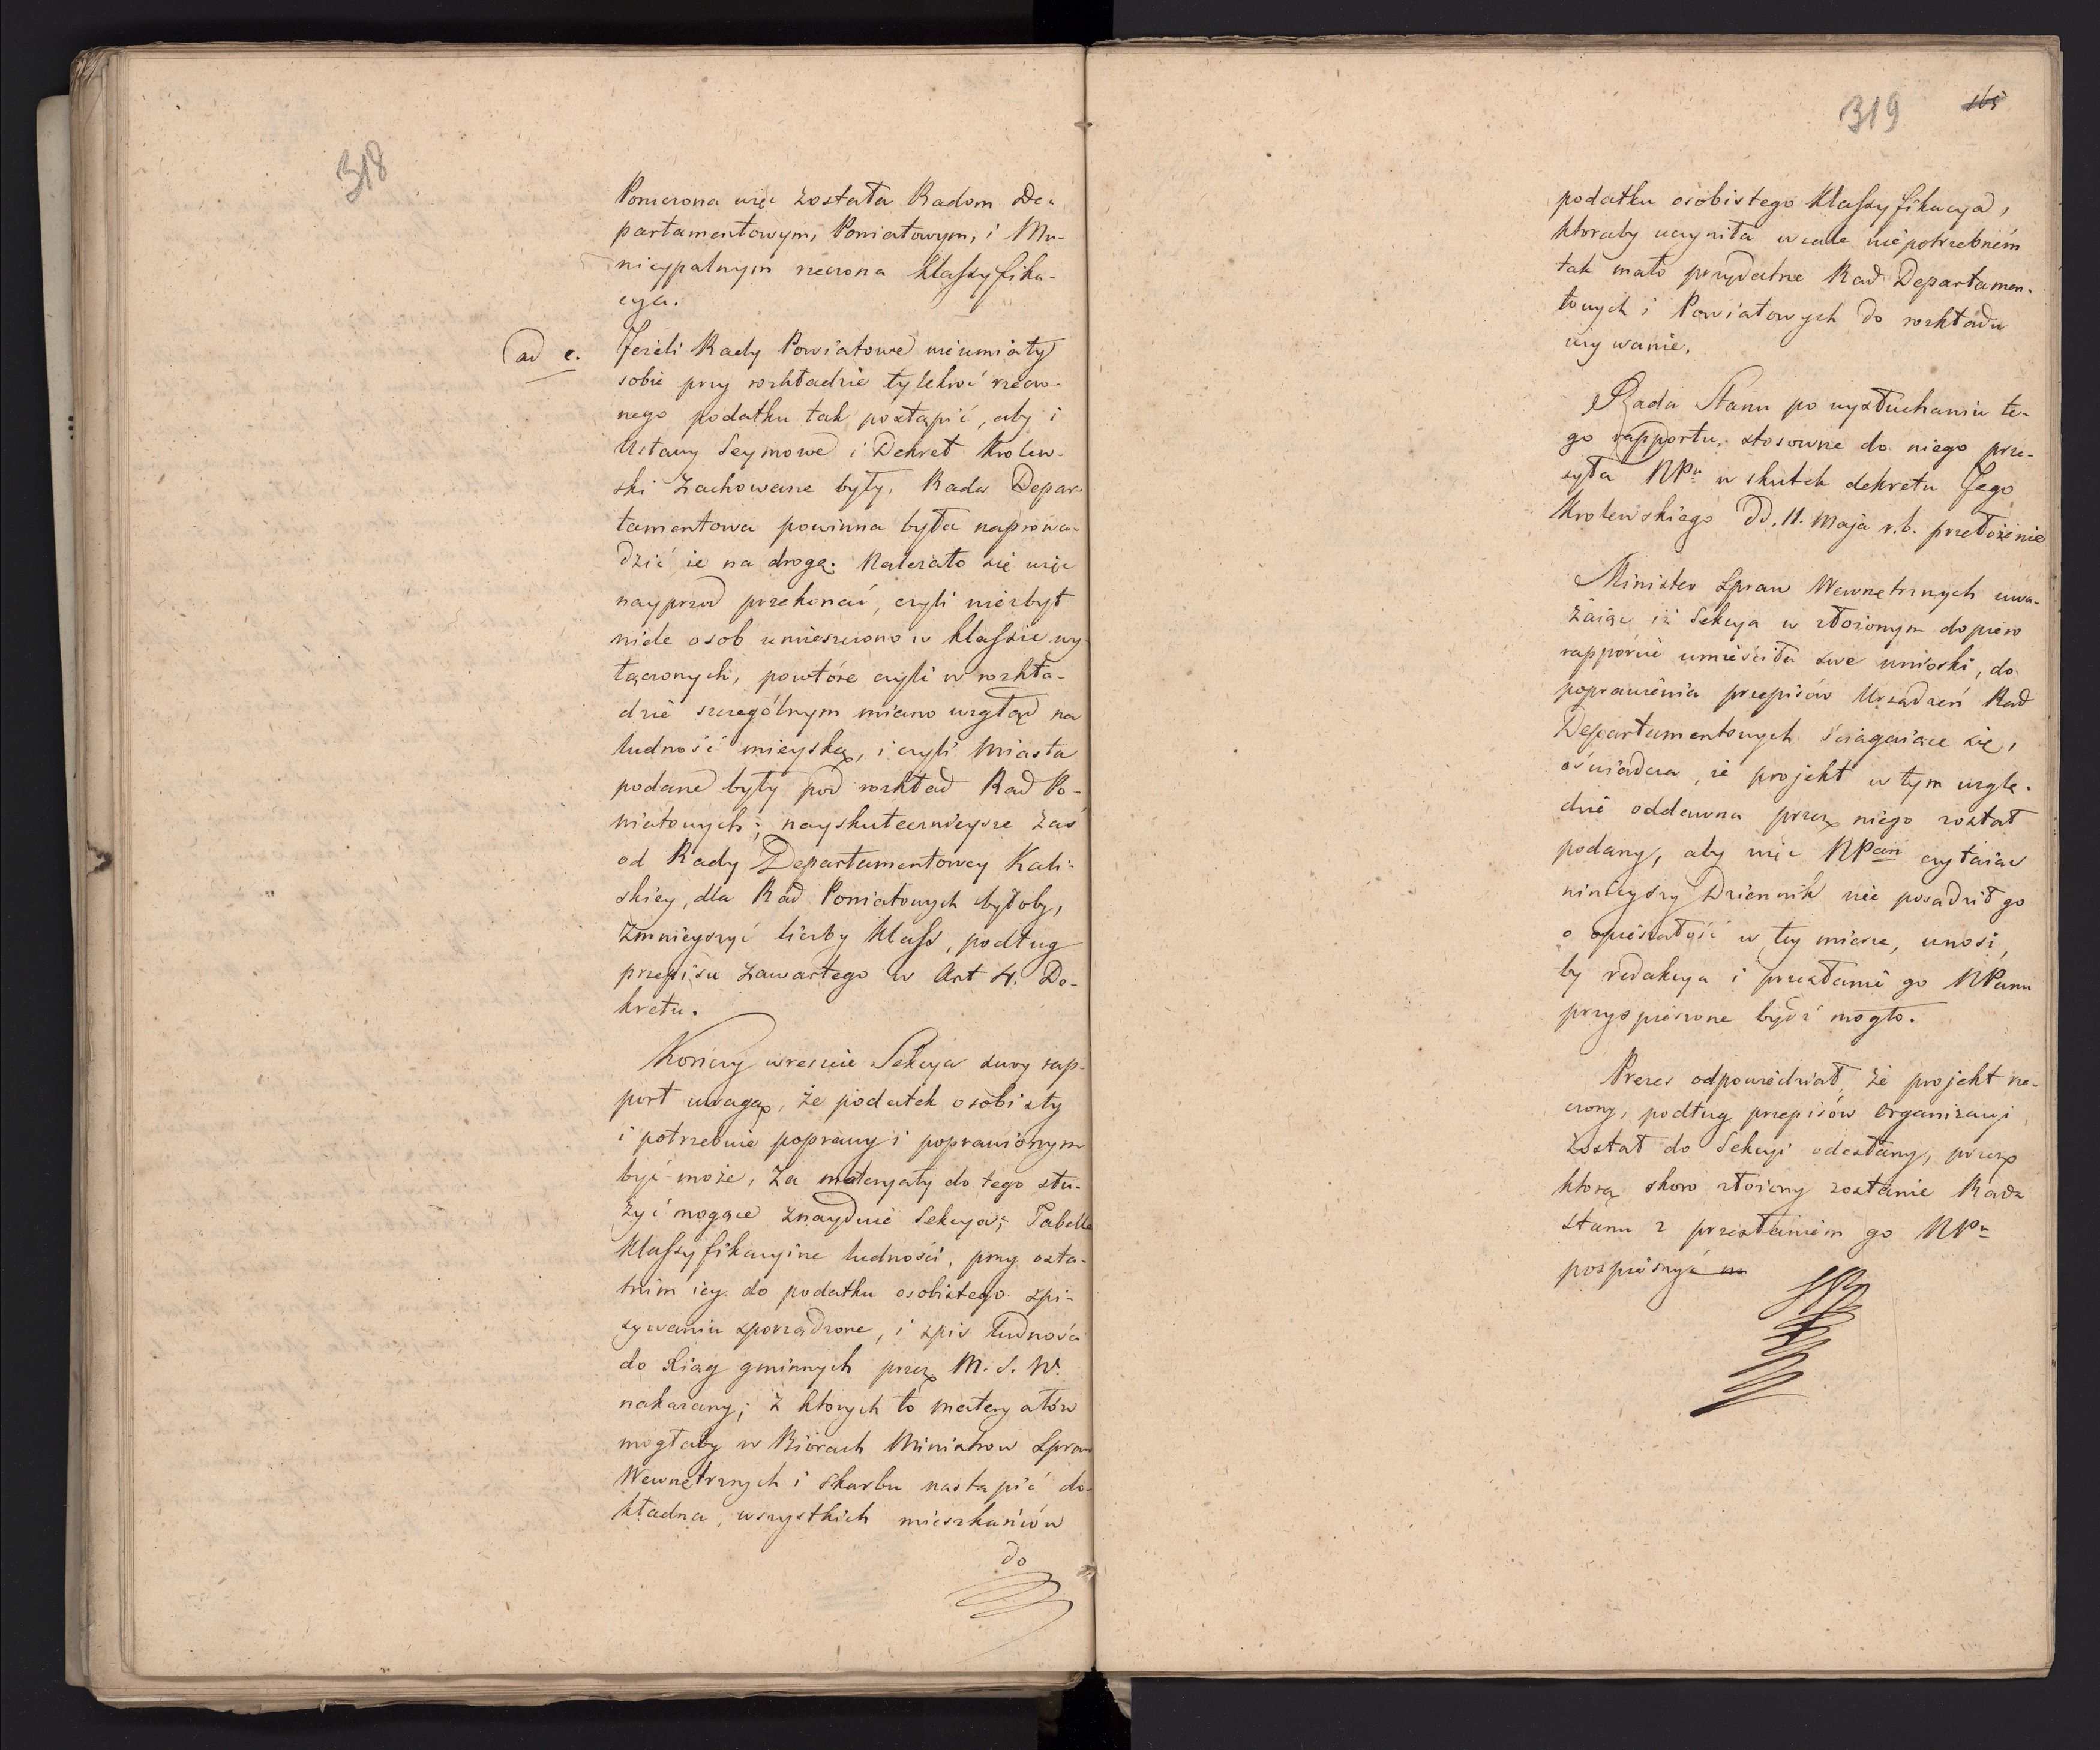 318
Poruczona więc została Radom De-
partamentowym, Powiatowym, i Mu-
nicypalnym rzeczona klassyfika-
cya.
ad e. Jeżeli Rady Powiatowe nieumiały
sobie przy rozkładzie tylekroć rzeczo-
nego podatku tak postąpić, aby i
Ustawy Seymowe i Dekret Krolew-
ski zachowane były, Rada Depar-
tamentowa powinna była naprowa-
dzić ie na drogę. Należało się więc
nayprzod przekonać, czyli niezbyt
wiele osob umieszczono w klassie wy-
łączonych, powtóre czyli w rozkła-
dzie szczególnym miano wzgląd na
ludność mieyską, i czyli Miasta
podane były pod rozkład Rad Po-
wiatowych; nayskutecznieysze zaś
od Rady Departamentowey Kali-
skiey, dla Rad Powiatowych byłoby,
zmnieyszyć liczby Klass, podług
przepisu zawartego w Art 4. De-
kretu.
Kończy wreszcie Sekcya swoy rap-
port uwagą, że podatek osobisty
i potrzebuie poprawy i poprawionym
być może, Za materyały do tego słu-
żyć mogące znayduie Sekcya; Tabelle
Klassyfikacyine ludności, przy osta-
tnim iey do podatku osobistego spi-
sywaniu sporządzone, i spis ludności
do Xiąg gminnych przez M. S. W.
nakazany; z ktorych to materyałów
mogłaby w Biórach Ministrow Spraw
Wewnętrznych i Skarbu nastąpić do-
kładna, wszystkich mieszkańców
do
319 165
podatku osobistego Klassyfikacya,
ktoraby uczyniła wcale niepotrzebném
tak mało przydatne Rad Departamen-
towych i Powiatowych do rozkładu
wzywanie.
Rada Stanu po wysłuchaniu te-
go rapportu, stosowne do niego prze-
syła NPu w skutek dekretu Jego
Krolewskiego dd. 11. Maja r.b. przełożenie
Minister Spraw Wewnętrznych uwa-
żaiąc iż Sekcya w złożonym dopiero
rapporcie umieściła swe wnioski, do
poprawienia przepisów Urządzeń Rad
Departamentowych ściągaiące się,
oświadcza, że projekt w tym wzglę-
dzie oddawna przez niego został
podany, aby więc NPan czytaiąc
ninieyszy Dziennik nie posądził go
o opieszałość w tey mierze, wnosi,
by redakcya i przesłanie go NPanu
przyspieszone bydź mogło.
Prezes odpowiedział, że projekt rze-
czony, podług przepisów Organizacyi
został do Sekcyi odesłany, przez
ktorą skoro złożony zostanie Rada
Stanu z przesłaniem go NPu
pospieszyć